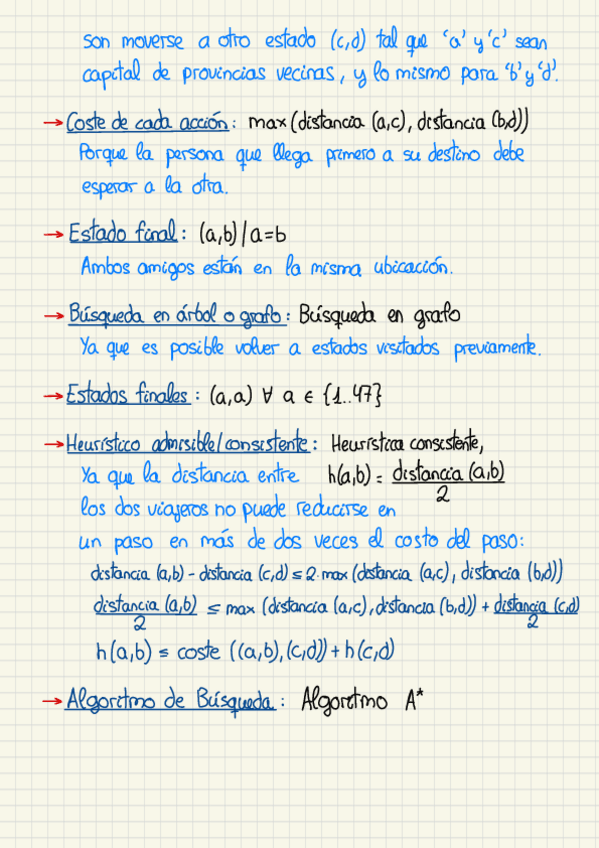 son moverse a otro estado (c,d) tal que 'a' y 'c' sean
capital de provincias vecinas, y lo mismo para 'b' y 'd'.
→ Coste de cada acción: max(distancia (a,c), distancia (b,d))
Porque la persona que llega primero a su destino debe
esperar a la otra.
→ Estado final: (a,b) | a=b
Ambos amigos están en la misma ubicación.
→ Búsqueda en árbol o grafo: Búsqueda en grafo
Ya que es posible volver a estados visitados previamente.
→ Estados finales: (a,a) ∀ a ∈ {1..47}
→ Heurístico admisible/consistente: Heurística consistente,
Ya que la distancia entre h(a,b) = distancia (a,b) / 2
los dos viajeros no puede reducirse en
un paso en más de dos veces el costo del paso:
distancia (a,b) - distancia (c,d) ≤ 2·max (distancia (a,c), distancia (b,d))
distancia (a,b) / 2 ≤ max (distancia (a,c), distancia (b,d)) + distancia (c,d) / 2
h(a,b) ≤ coste ((a,b),(c,d)) + h(c,d)
→ Algoritmo de Búsqueda: Algoritmo A*